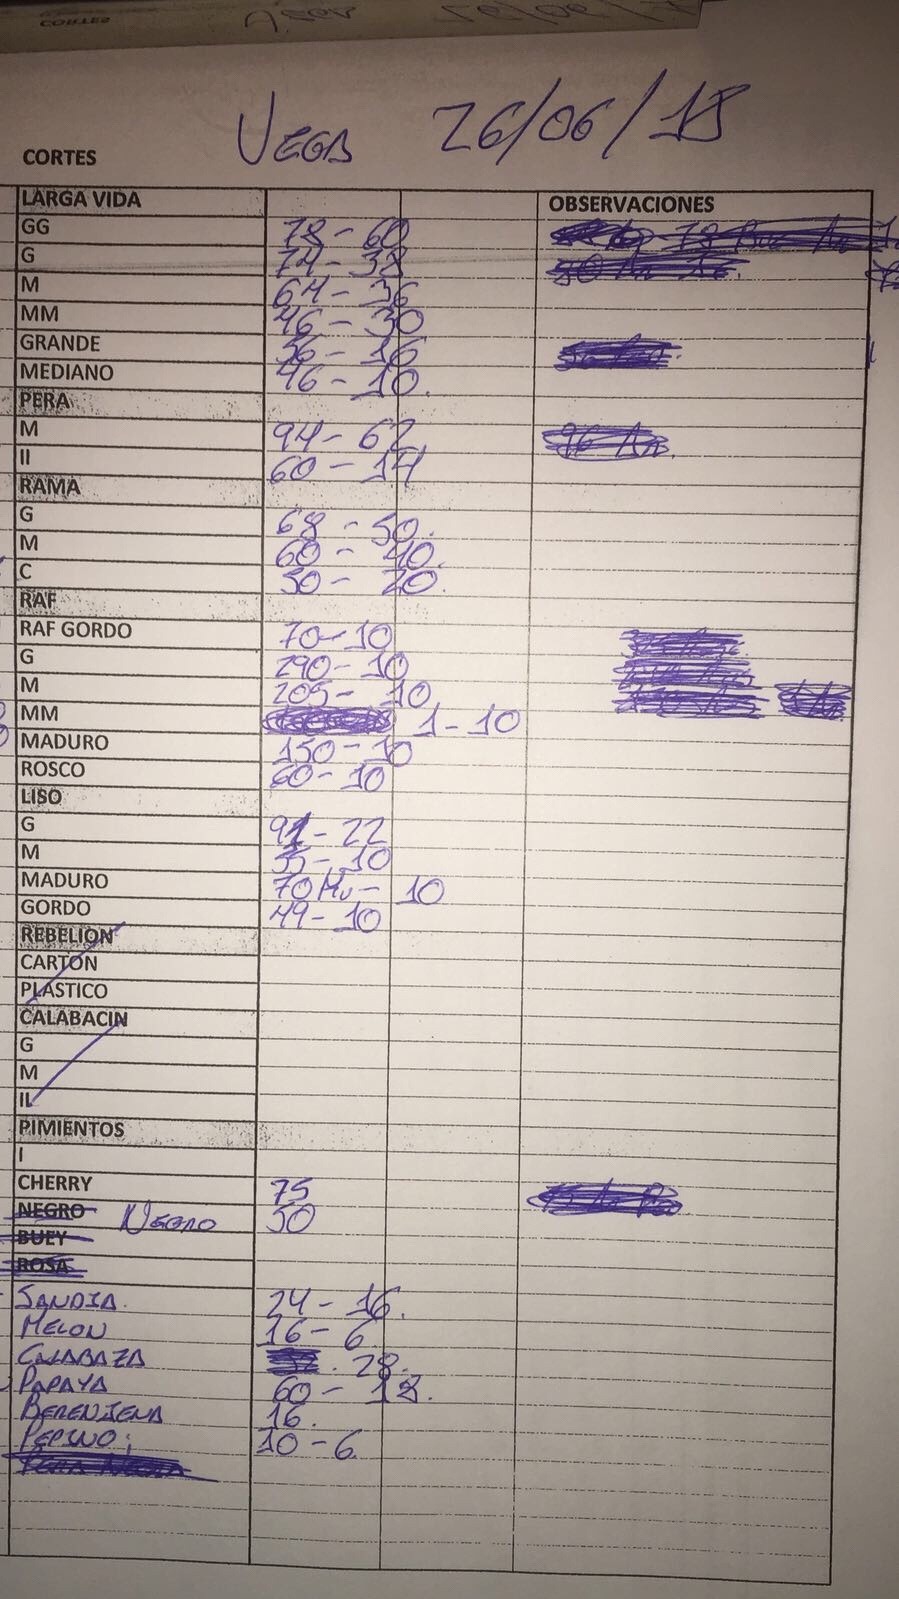 CORTES
VEGA 26/06/18
CORTES
LARGA VIDA OBSERVACIONES
GG 78-60
G 74-38
M 64-36
MM 46-30
GRANDE 56-16
MEDIANO 46-10.
PERA
M 94-62
II 60-14
RAMA
G 68-50.
M 60-40.
C 50-20.
RAF
RAF GORDO 70-10
G 290-10
M 205-10
MM 1-10
MADURO 150-10
ROSCO 60-10
LISO
G 91-22
M 55-10
MADURO 70 Mu-10
GORDO 49-10
REBELION
CARTON
PLASTICO
CALABACIN
G
M
II
PIMIENTOS
I
CHERRY 75
NEGRO NEGRO 50
BUEY
ROSA
SANDIA. 24-16.
MELON 16-6
CALABAZA . 28.
PAPAYA 60-18.
BERENJENA 16.
PEPINO; 10-6.